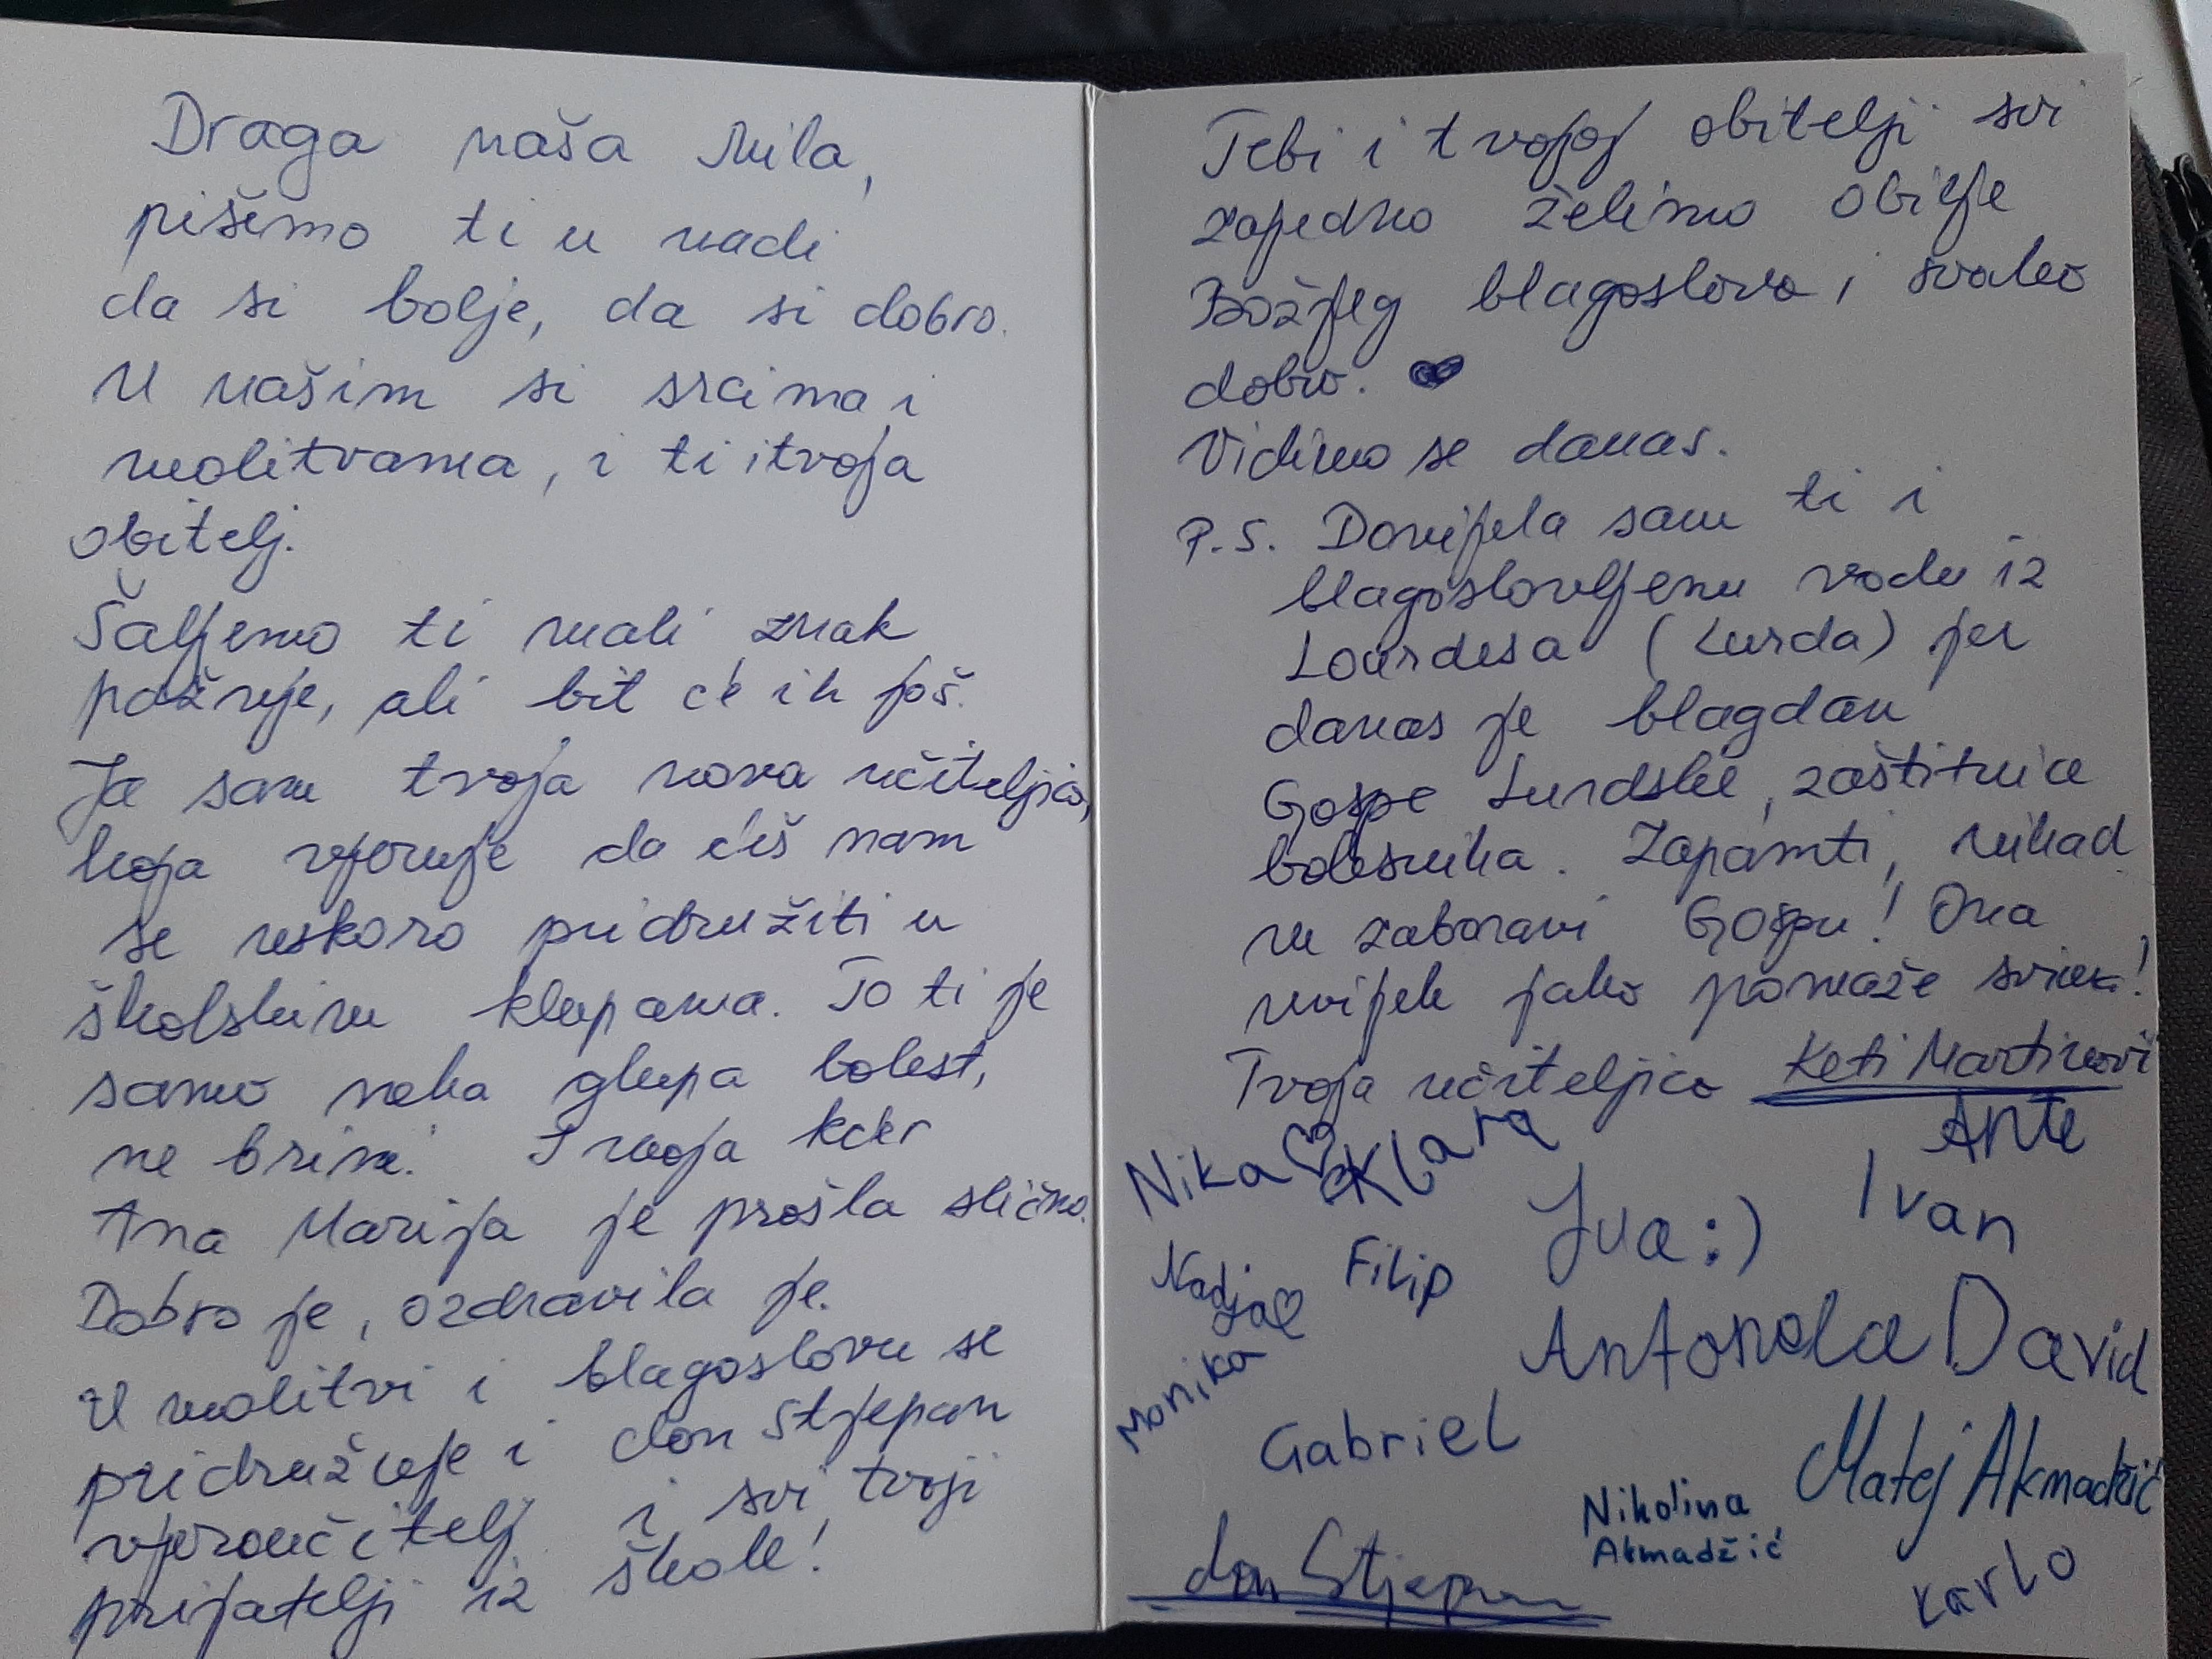 Draga naša Mila,
pišemo ti u nadi
da si bolje, da si dobro.
U našim si srcima i
molitvama, i ti i tvoja
obitelj.
Šaljemo ti mali znak
pažnje, ali bit će ih još.
Ja sam tvoja nova učiteljica,
koja vjeruje da ćeš nam
se uskoro pridružiti u
školskim klupama. To ti je
samo neka glupa bolest,
ne brini! Tvoja
Ana Marija je prošla slično.
Dobro je, ozdravila je.
U molitvi i blagoslovu se
pridružuje i don Stjepan
vjeroučitelj i svi tvoji
prijatelji iz škole!
Tebi i tvojoj obitelji svi
zajedno želimo obilje
Božjeg blagoslova i svako
dobro.
Vidimo se danas.
P.S. Donijela sam ti i
blagoslovljenu vodu iz
Lourdesa (Lurda) jer
danas je blagdan
Gospe Lurdske, zaštitnice
bolesnika. Zapamti, nikad
ne zaboravi Gospu! Ona
uvijek jako pomaže svima!
Tvoja učiteljica Keti Martinovi
Ante
Nika Klara
Iva :) Ivan
Nadja Filip
Antonela David
Monika
Gabriel
Matej Akmadžić
Nikolina
Akmadžić
don Stjepan
Karlo